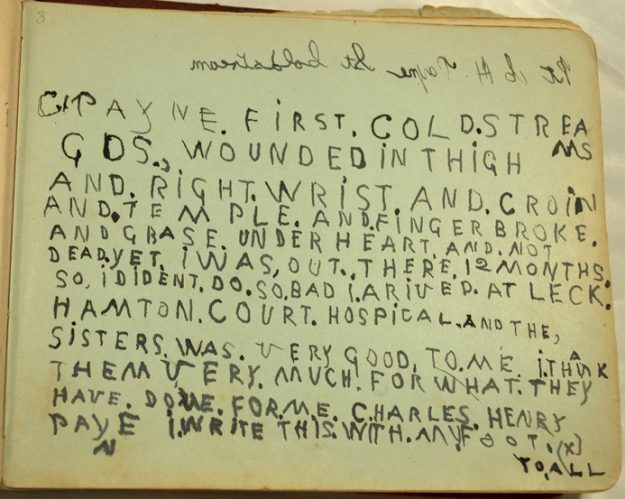 8
Pt. C H. Payne 1st Coldstream
C.PAYNE. FIRST. COLD.STREA
MS
GDS., WOUNDED IN THIGH
AND. RIGHT. WRIST. AND. CROIN
AND. TEMPLE. AND. FINGER BROKE.
AND GBASE. UNDER HEART. AND. NOT
DEAD. YET. i WAS, OUT. THERE. 12 MONTHS.
SO, i DIDENT. DO. SO. BAD i. ARIVED. AT LECK.
HAMTON. COURT. HOSPICAL. AND THE,
SISTERS. WAS. VERY GOOD, TO. ME. i. THANK
THEM VERY. MUCH. FOR WHAT. THEY
HAVE. DONE. FOR ME. CHARLES. HENRY
PAYNE i. WRITE THIS. WITH. MY. FOOT. (X)
TO, ALL